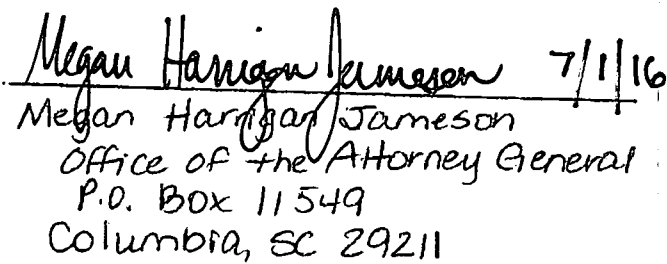 Megan Harrigan Jameson 7/1/16
Megan Harrigan Jameson
Office of the Attorney General
P.O. Box 11549
Columbia, SC 29211